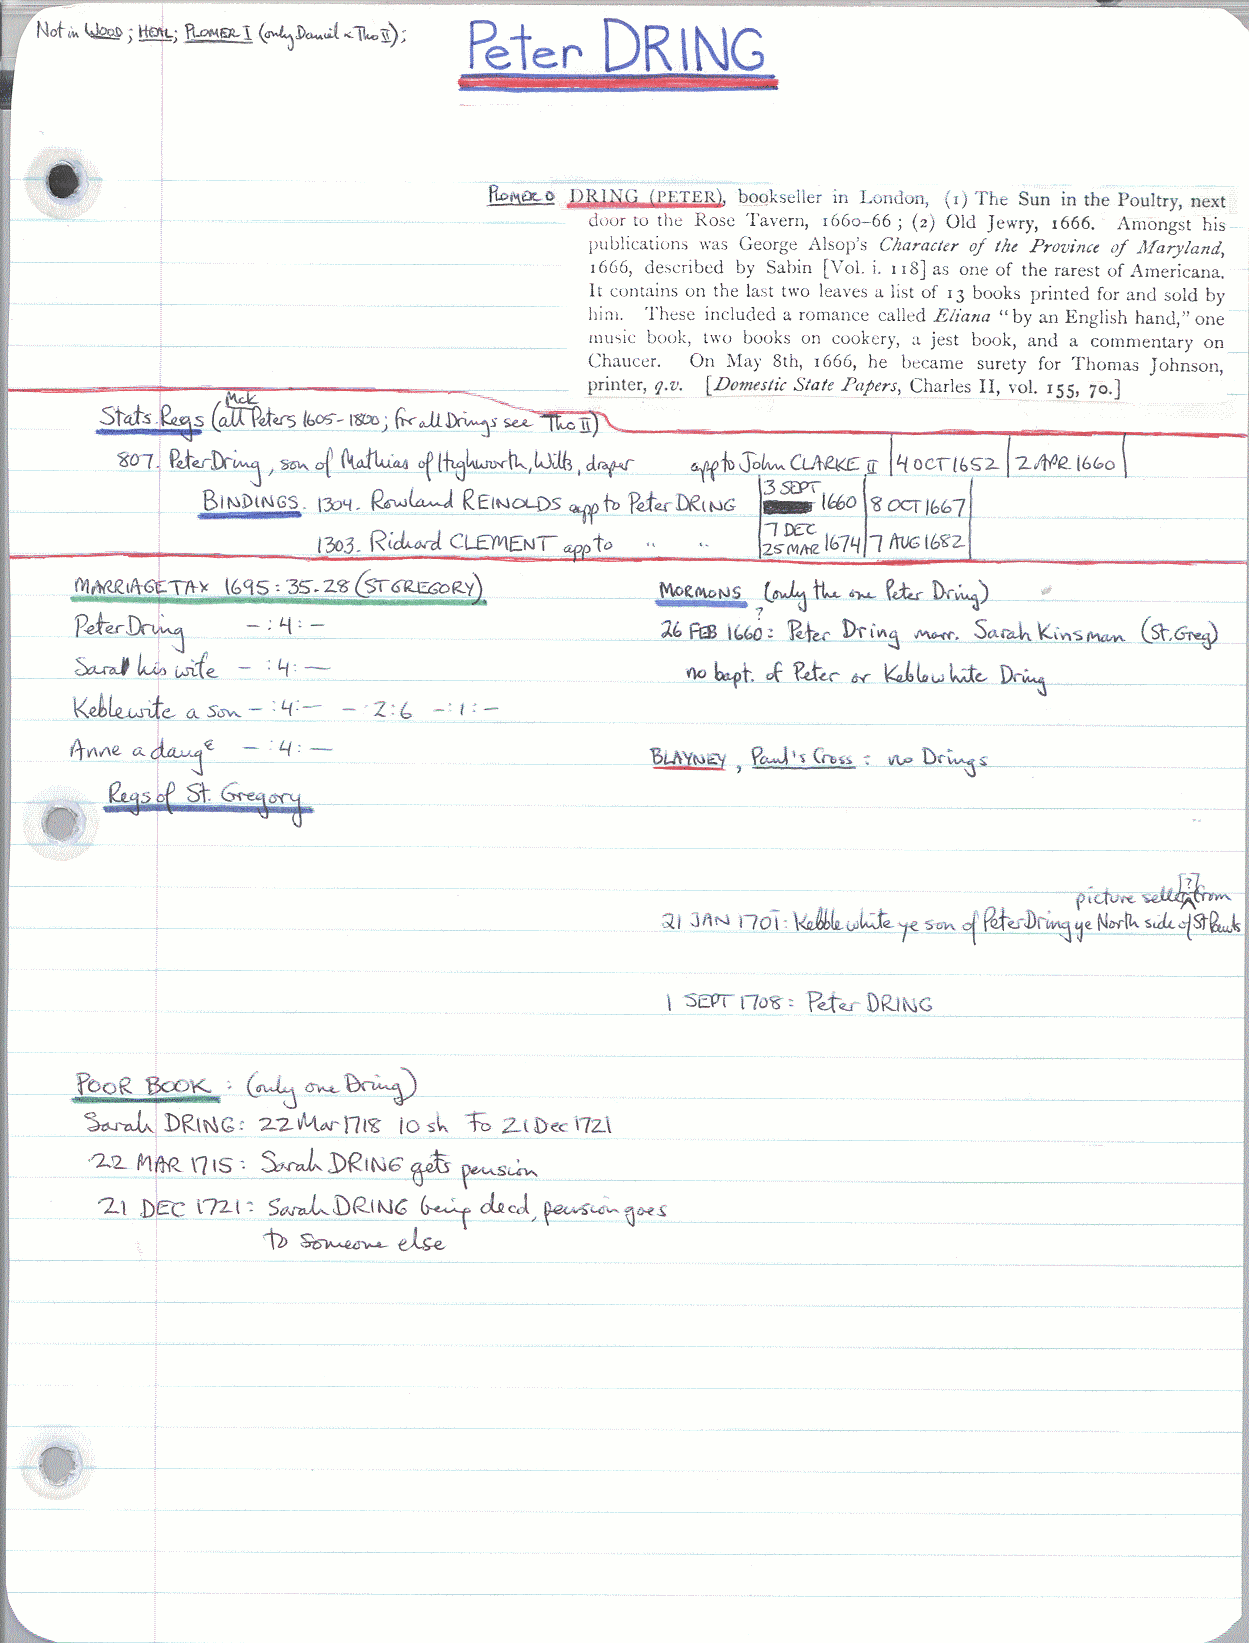 Not in WOOD; HEAL; PLOMER I (only Daniel & Tho II);
Peter DRING
PLOMER DRING (PETER), bookseller in London, (1) The Sun in the Poultry, next
door to the Rose Tavern, 1660-66; (2) Old Jewry, 1666. Amongst his
publications was George Alsop's Character of the Province of Maryland,
1666, described by Sabin [Vol. i. 118] as one of the rarest of Americana.
It contains on the last two leaves a list of 13 books printed for and sold by
him. These included a romance called Eliana "by an English hand," one
music book, two books on cookery, a jest book, and a commentary on
Chaucer. On May 8th, 1666, he became surety for Thomas Johnson,
printer, q.v. [Domestic State Papers, Charles II, vol. 155, 70.]
McK
Stats. Regs (all Peters 1605-1800; for all Drings see Tho II)
807. Peter Dring, son of Mathias of Highworth, Wilts, draper app to John CLARKE II 4 OCT 1652 2 APR 1660
BINDINGS. 1304. Rowland REINOLDS app to Peter DRING 3 SEPT 1660 8 OCT 1667
1303. Richard CLEMENT app to " " 7 DEC 25 MAR 1674 7 AUG 1682
MARRIAGE TAX 1695: 35.28 (ST GREGORY)
Peter Dring - :4: -
Sarah his wife - :4: -
Keblewite a son - :4: - - · 2:6 - :1: -
Anne a daugr - :4: -
Regs of St. Gregory
MORMONS (only the one Peter Dring)
26 FEB 1660?: Peter Dring marr. Sarah Kinsman (St. Greg)
no bapt. of Peter or Keblewhite Dring
BLAYNEY, Paul's Cross: no Drings
picture seller [?] from
21 JAN 1701: Kebblewhite ye son of Peter Dring ye North side of St Pauls
1 SEPT 1708: Peter DRING
POOR BOOK: (only one Dring)
Sarah DRING: 22 Mar 1718 10 sh To 21 Dec 1721
22 MAR 1715: Sarah DRING gets pension
21 DEC 1721: Sarah DRING being decd, pension goes
to someone else